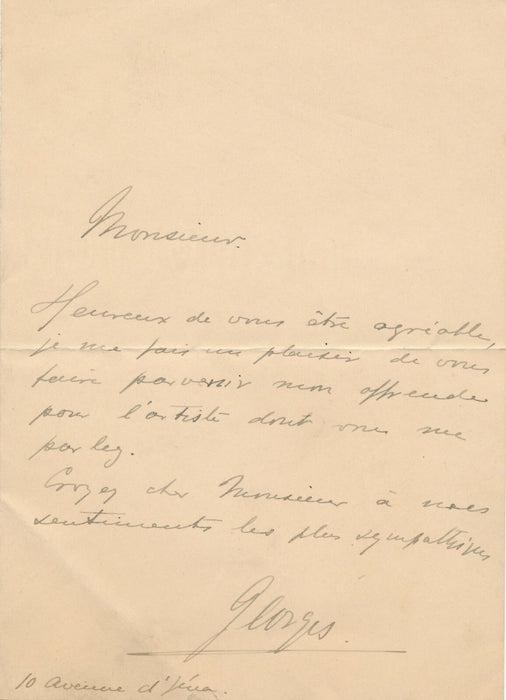 Monsieur.
Heureux de vous être agréable,
je me fais un plaisir de vous
faire parvenir mon offrande
pour l'artiste dont vous me
parlez.
Croyez cher Monsieur à mes
sentiments les plus sympathiques
Georges.
10 Avenue d'Iéna.